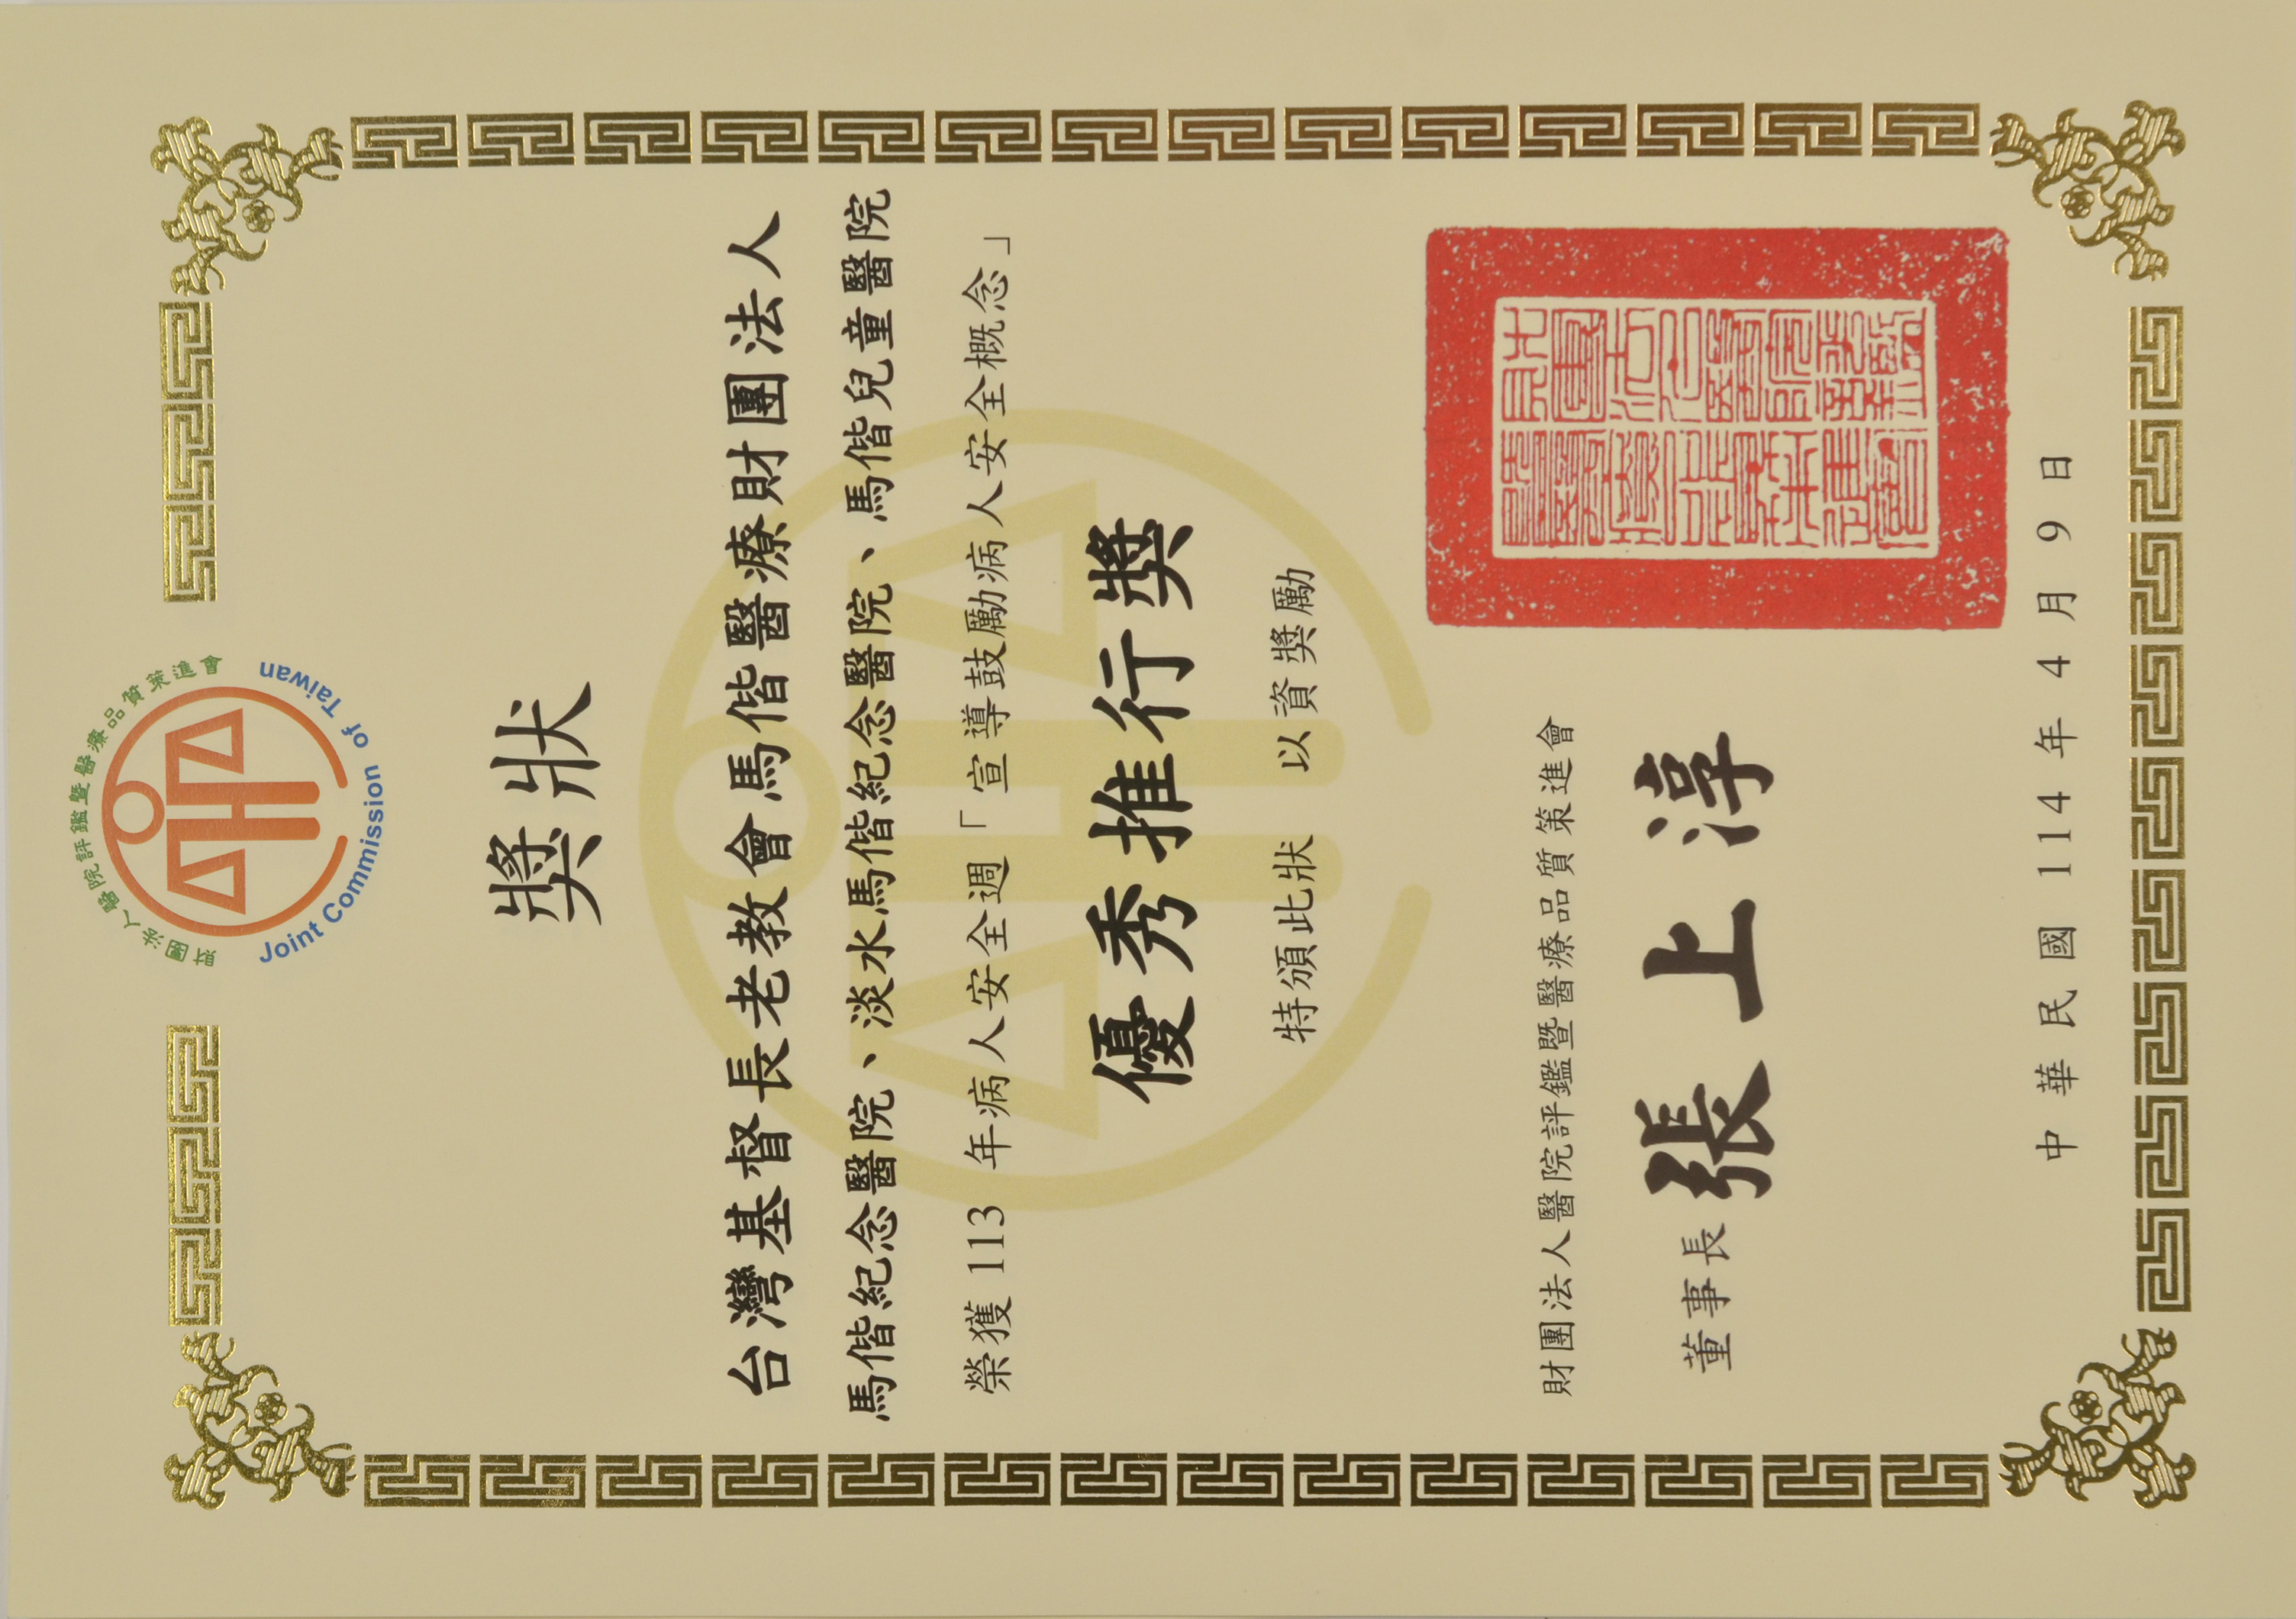 財團法人醫院評鑑暨醫療品質策進會
Joint Commission of Taiwan
獎狀
台灣基督長老教會馬偕醫療財團法人
馬偕紀念醫院、淡水馬偕紀念醫院、馬偕兒童醫院
榮獲 113 年病人安全週「宣導鼓勵病人安全概念」
優秀推行獎
特頒此狀 以資獎勵
財團法人醫院評鑑暨醫療品質策進會
董事長 張上淳
中華民國 114 年 4 月 9 日